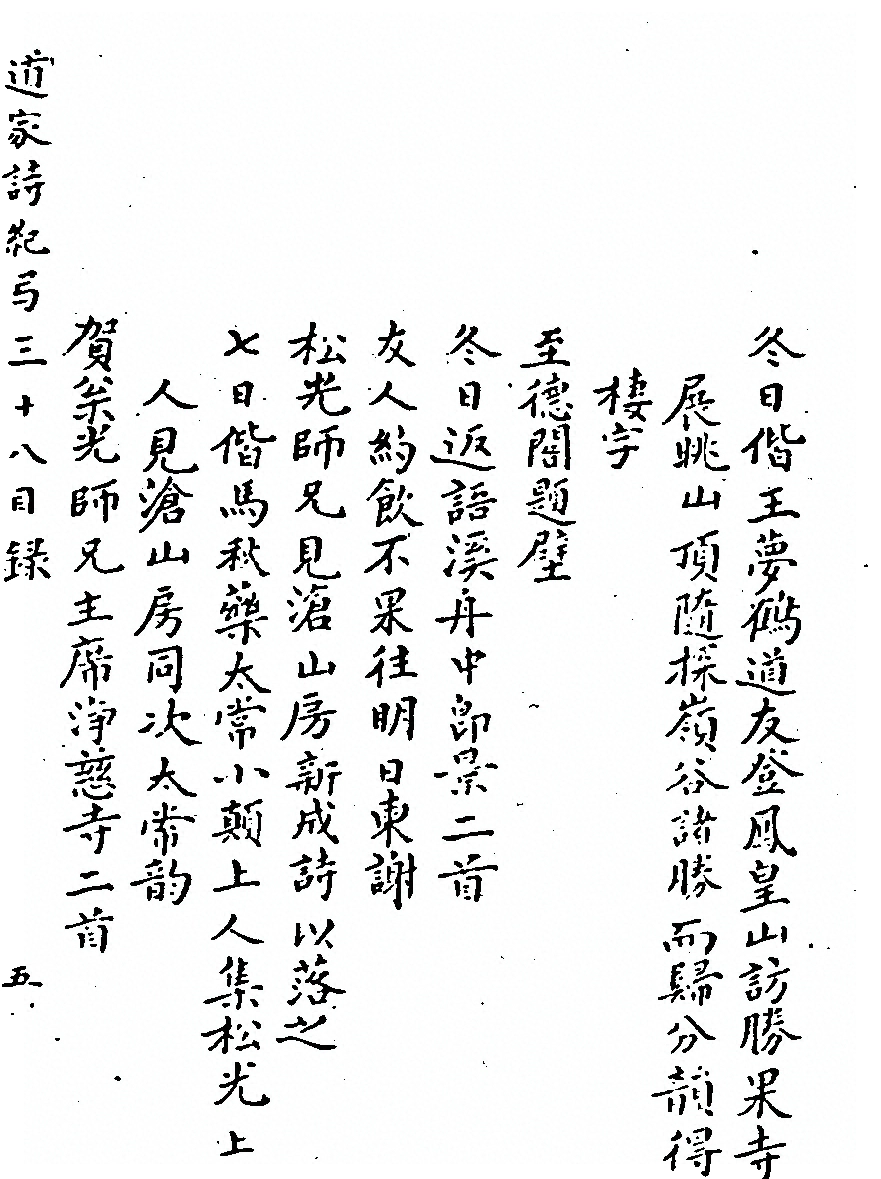 冬日偕王夢鶴道友登鳳皇山訪勝果寺
展眺山頂隨探嶺谷諸勝而歸分韻得
棲字
至德閣題壁
冬日返語溪舟中即景二首
友人約飲不果往明日柬謝
松光師兄見滄山房新成詩以落之
七日偕馬秋藥太常小顛上人集松光上
人見滄山房同次太常韵
賀松光師兄主席淨慈寺二首
道家詩紀弓三十八目録
五